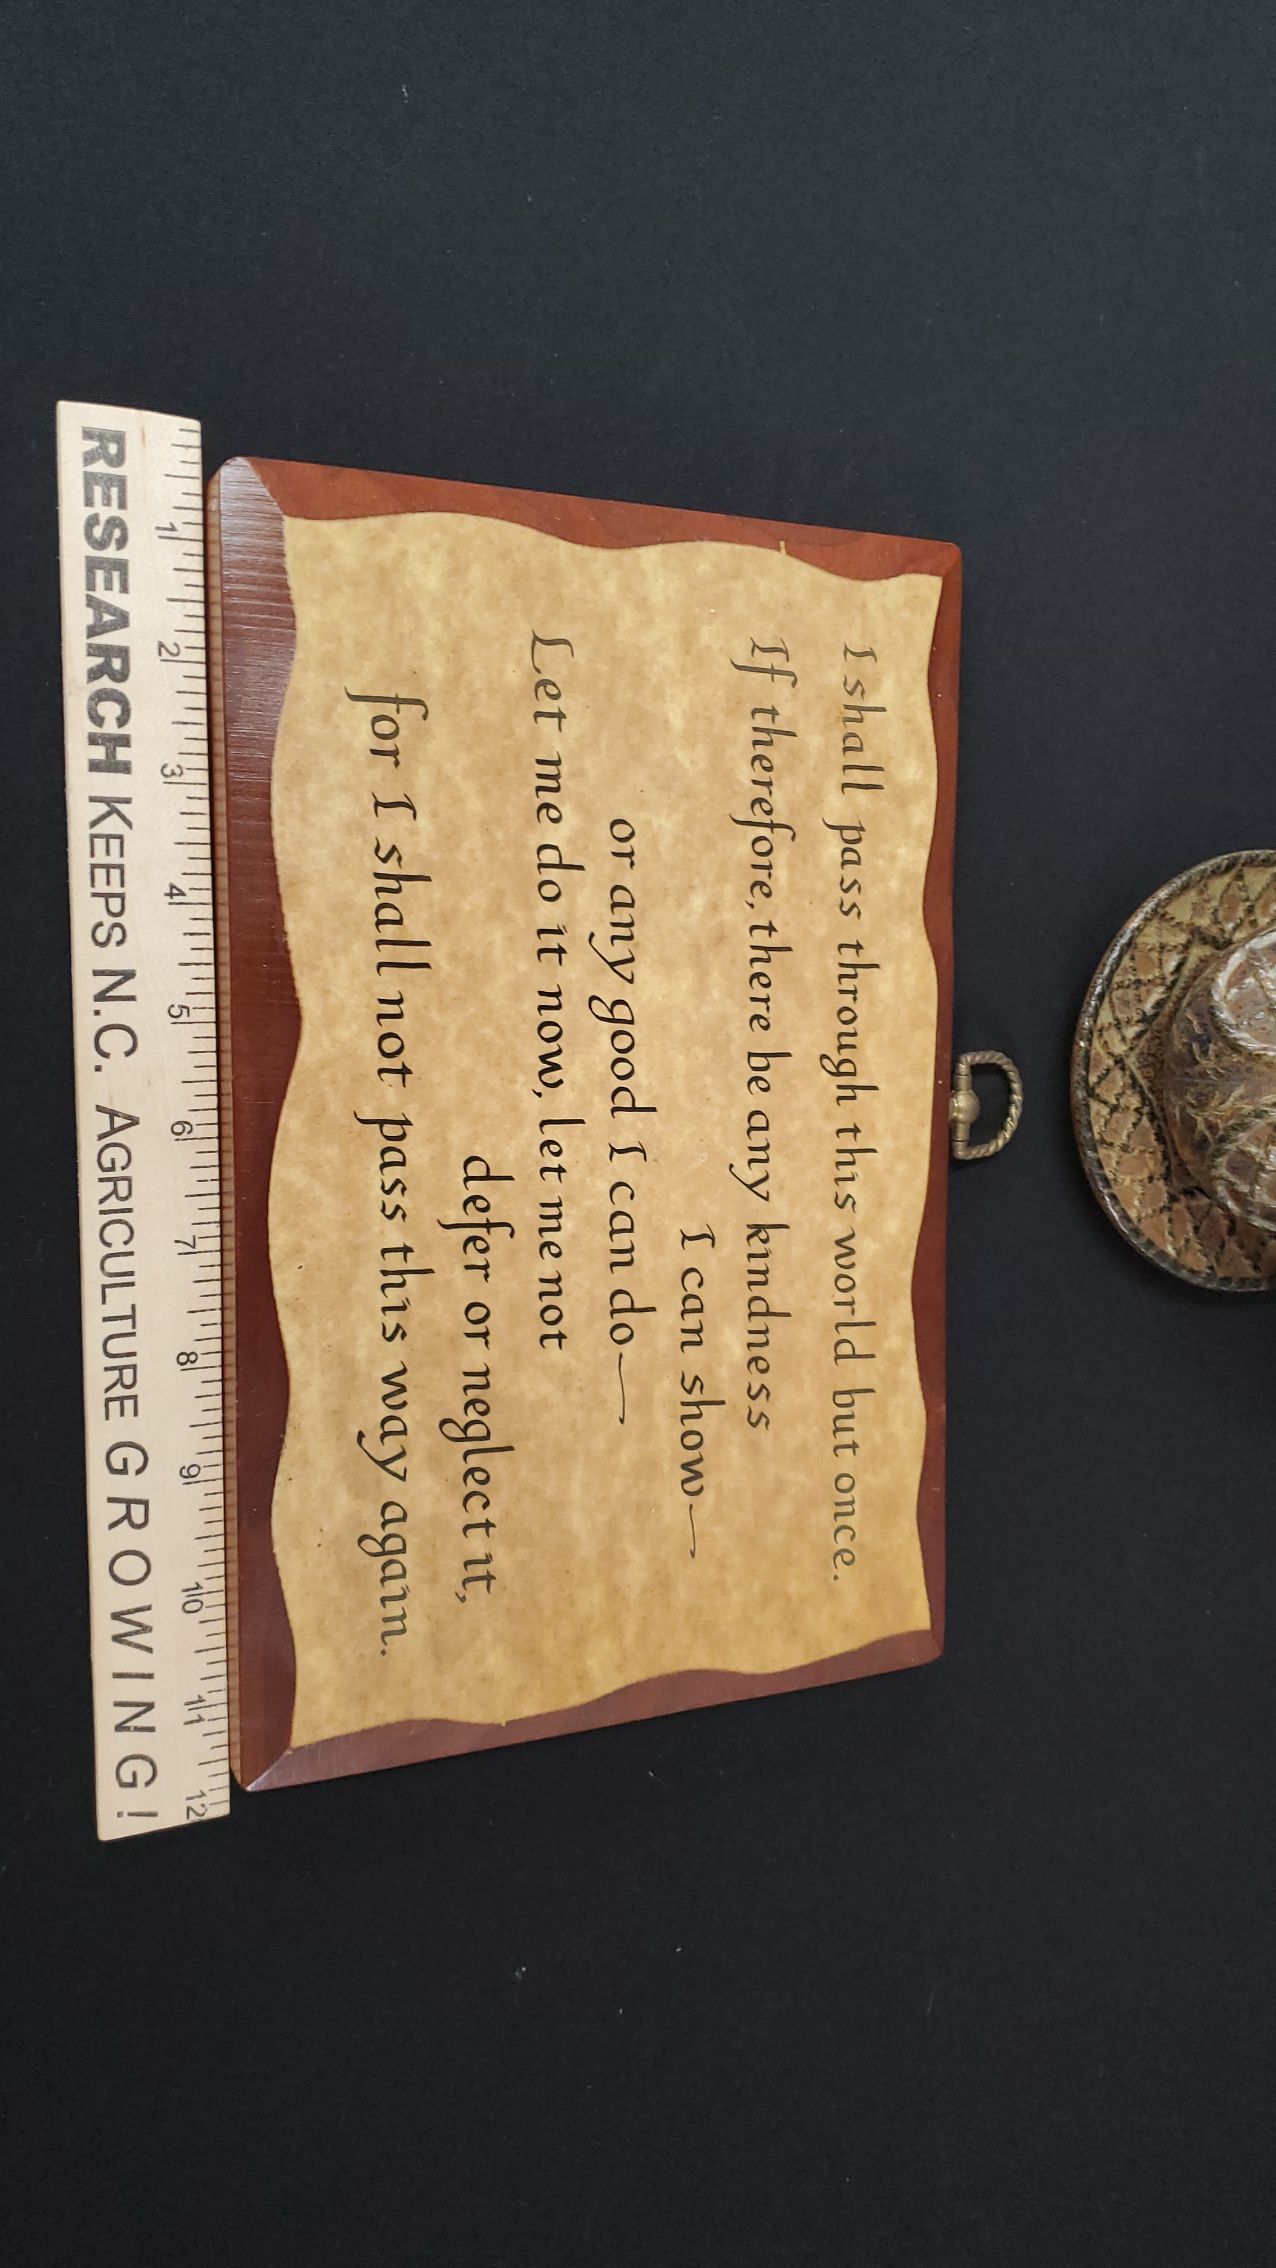 I shall pass through this world but once.
If therefore, there be any kindness
I can show—
or any good I can do—
Let me do it now, let me not
defer or neglect it,
for I shall not pass this way again.
1 2 3 4 5 6 7 8 9 10 11 12
RESEARCH KEEPS N.C. AGRICULTURE GROWING!